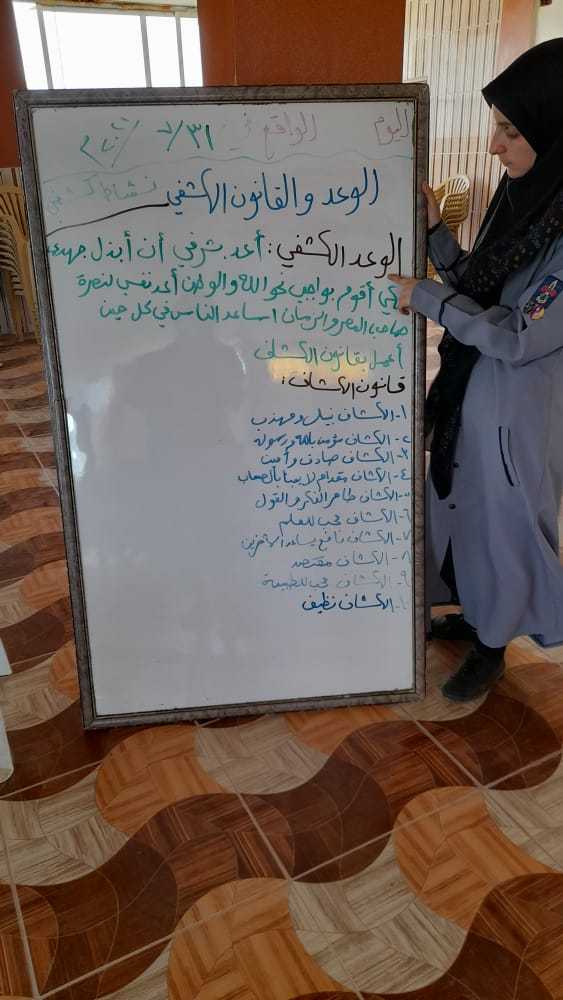 اليوم الواقع في ٧/٣١
نشاط كشفي
الوعد والقانون الكشفي
الوعد الكشفي: أعد بشرفي أن أبذل جهدي
كي أقوم بواجبي نحو الله والوطن أعد نفسي لنصرة
صاحب العصر والزمان اساعد الناس في كل حين
أعمل بقانون الكشاف
قانون الكشاف:
١- الكشاف نبيل ومهذب
٢- الكشاف مؤمن بالله ورسوله
٣- الكشاف صادق وأمين
٤- الكشاف مقدام لا يعبأ بالصعاب
٥- الكشاف طاهر الفكر والقول
٦- الكشاف محب للعلم
٧- الكشاف نافع يساعد الآخرين
٨- الكشاف مقتصد
٩- الكشاف محب للطبيعة
١٠- الكشاف نظيف